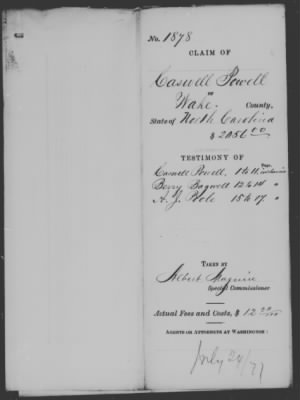 No. 1878
CLAIM OF
Caswell Powell
OF
Wake County,
State of North Carolina
$ 2056 00
TESTIMONY OF
Page.
Caswell Powell, 1 to 11 inclusive
Berry Bagwell 12 to 14 "
A. J. Pole 15 to 17 "
TAKEN BY
Albert Magnire
Special Commissioner
Actual Fees and Costs, $ 12
AGENTS OR ATTORNEYS AT WASHINGTON:
July 24/77